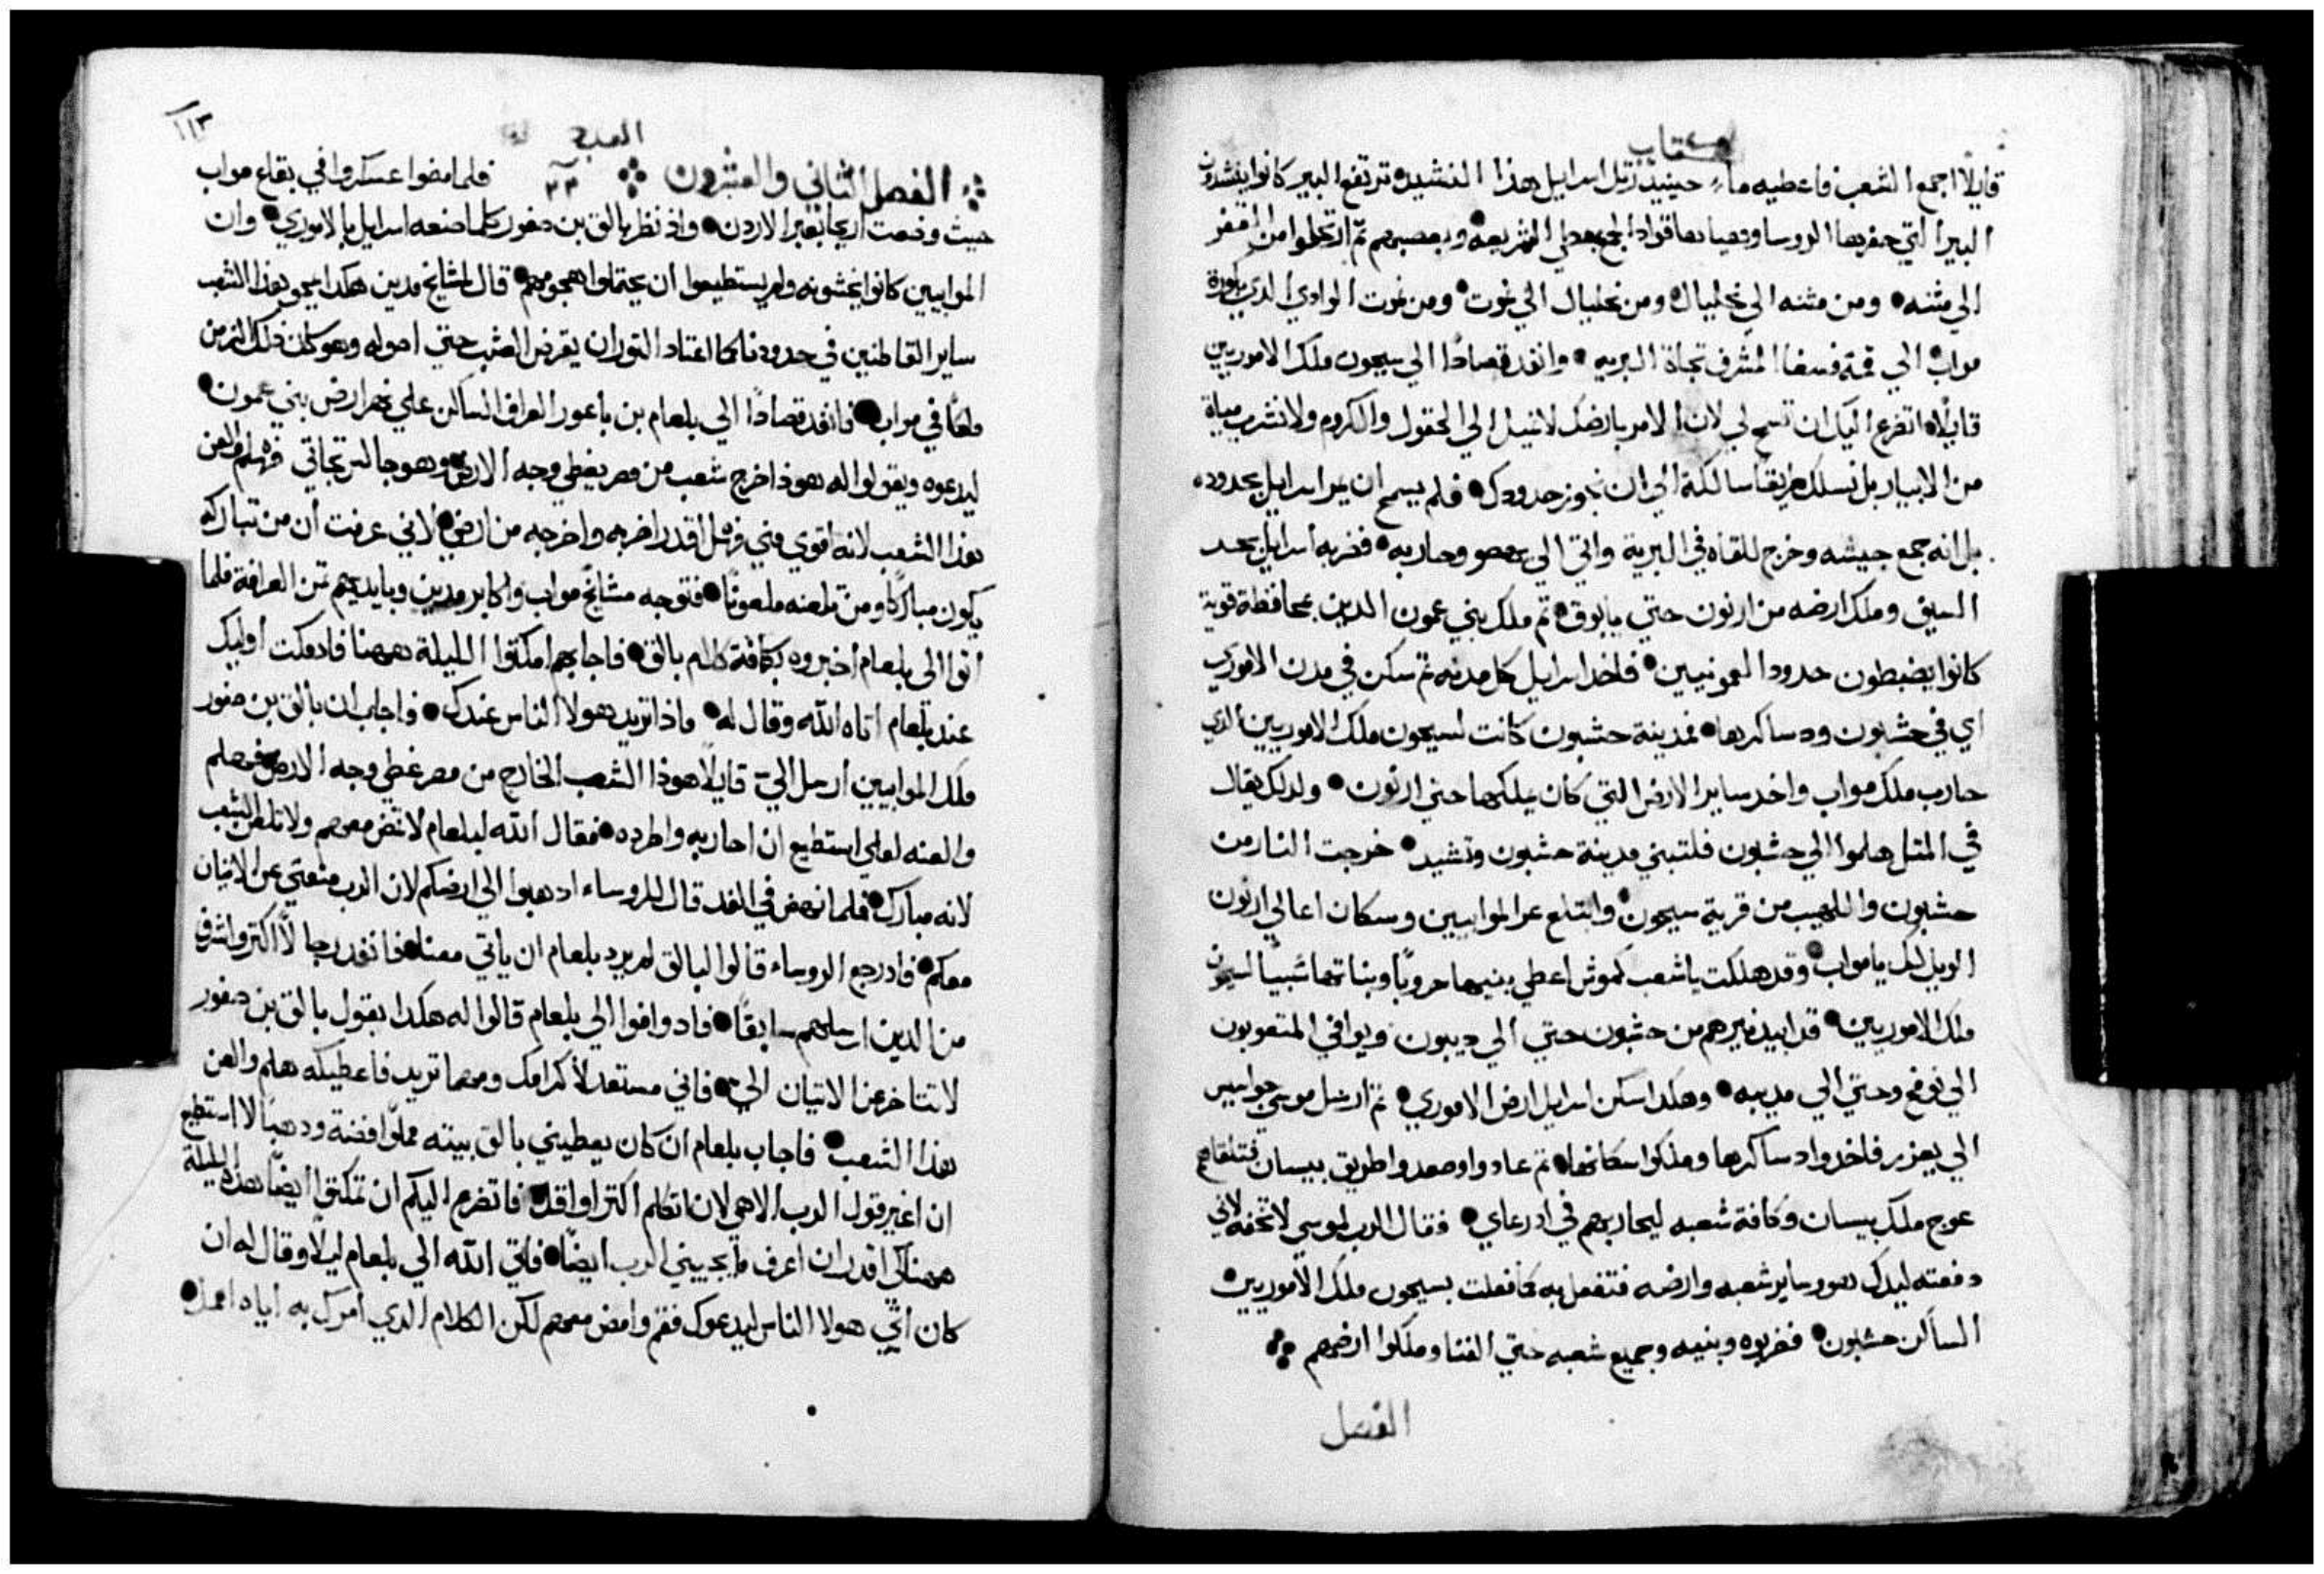 كتاب
قايلاً اجمع الشعب فاعطيه ماء حينيد رتل اسرايل هذا النشيد ترتفع البير كانوا ينشدون
البير التي حفرها الروسا وهياها قواد الجمع بمعطي الشريعه وبعصيهم ثم ارتحلوا من القفر
الي مثنه ومن مثنه الي نحليال ومن نحليال الي نموت ومن نموت الوادي الدي بكورة
مواب الي قمة فسغا المشرف تجاة البريه وانفد قصادًا الي سيحون ملك الاموريين
قايلاً اتضرع اليك ان تسمح لي لان الامر بارضك لانميل الي الحقول والكروم ولا نشرب مياة
من الابيار بل نسلك طريقًا سالكة الي ان نجوز حدودك فلم يسمح ان يمر اسرايل بحدوده
بل انه جمع جيشه وخرج للقاه في البرية واتي الي يهصو وحاربه فضربه اسرايل بحد
السيف وملك ارضه من ارنون حتي يابوق ثم ملك بني عمون الدين بمحافظة قوية
كانوا يضبطون حدود العمونيين فاخد اسرايل كل مدنه ثم سكن في مدن الاموري
اي في حشبون ودساكرها فمدينة حشبون كانت لسيحون ملك الاموريين الدي
حارب ملك مواب واخد ساير الارض التي كان يملكها حتي ارنون ولدلك يقال
في المثل هلموا الي حشبون فلتبني مدينة حشبون وتشيد خرجت النار من
حشبون واللهيب من قرية سيحون وابتلع عر الموابيين وسكان اعالي ارنون
الويل لك يا مواب وقد هلكت ياشعب كموش اعطي بنيها هروبًا وبناتها سبيًا لسيحون
ملك الاموريين قد ابيد نيرهم من حشبون حتي الي ديبون ويوافي المتعوبون
الي نوفح وحتي الي مديبه وهكدا سكن اسرايل ارض الاموري ثم ارسل موسي جواسيس
الي يعزير فاخدوا دساكرها وملكوا سكانها ثم عادوا وصعدوا طريق بيسان فتلقاهم
عوج ملك بيسان وكافة شعبه ليحاربهم في ادرعاي فقال الرب لموسي لا تخفه لاني
دفعته ليدك هو وساير شعبه وارضه فتفعل به كما فعلت بسيحون ملك الاموريين
الساكن حشبون فضربوه وبنيه وجميع شعبه حتي الفنا وملكوا ارضهم
الفصل
العدد
١١٣
الفصل الثاني والعشرون ٢٢ فلما مضوا عسكروا في بقاع مواب
حيث وضعت اريحا بعبر الاردن واذ نظر بالق بن صفور كلما صنعه اسرايل بالاموري وان
الموابيين كانوا يخشونه ولم يستطيعوا ان يحتملوا هجومهم قال لمشايخ مدين هكدا يمحو هذا الشعب
ساير القاطنين في حدودنا كما اعتاد الثور ان يقرض العشب حتي اصوله وهو كان ذلك الزمن
ملكًا في مواب فانفد قصادًا الي بلعام بن باعور العراف الساكن علي نهر ارض بني عمون
ليدعوه ويقولوا له هوذا خرج شعب من مصر يغطي وجه الارض وهو جالس تجاتي فهلم والعن
هذا الشعب لانه اقوي مني فهل اقدر اضربه واخرجه من ارضي لاني عرفت ان من تباركه
يكون مباركًا ومن تلعنه ملعونًا فتوجه مشايخ مواب واكابر مدين وبايديهم ثمن العرافة فلما
اتوا الي بلعام اخبروه بكافة كلام بالق فاجابهم امكثوا الليلة ههنا فاد مكث اوليك
عند بلعام اتاه الله وقال له ماذا تريد هولا الناس عندك فاجاب ان بالق بن صفور
ملك الموابيين ارسل اليّ قايلاً هوذا الشعب الخارج من مصر غطي وجه الارض فهلم
والعنه لعلي استطيع ان احاربه واطرده فقال الله لبلعام لا تمض معهم ولا تلعن الشعب
لانه مبارك فلما نهض في الغد قال للروساء ادهبوا الي ارضكم لان الرب منعني عن الاتيان
معكم فاد رجع الروساء قالوا لبالق لم يرد بلعام ان ياتي معنا فانفد رجالاً اكثر واشرف
من الدين ارسلهم سابقًا فاد وافوا الي بلعام قالوا له هكدا يقول بالق بن صفور
لا تتاخر عن الاتيان اليّ فاني مستعد لاكرامك ومهما تريد فاعطيكه هلم والعن
هذا الشعب فاجاب بلعام ان كان يعطيني بالق بيته مملوًا فضة ودهبًا لا استطيع
ان اغير قول الرب الاهي لان اتكلم اكثر او اقل فاتضرع اليكم ان تمكثوا ايضًا هذه الليلة
ههنا كي اقدر ان اعرف ما يجيبني الرب ايضًا فاتي الله الي بلعام ليلاً وقال له ان
كان اتي هولا الناس ليدعوك فقم وامض معهم لكن الكلام الدي امرك به اياه اعمل